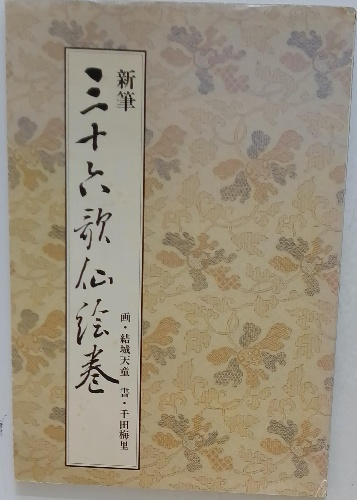 新筆
三十六歌仙絵巻
画・結城天童 書・千田梅里